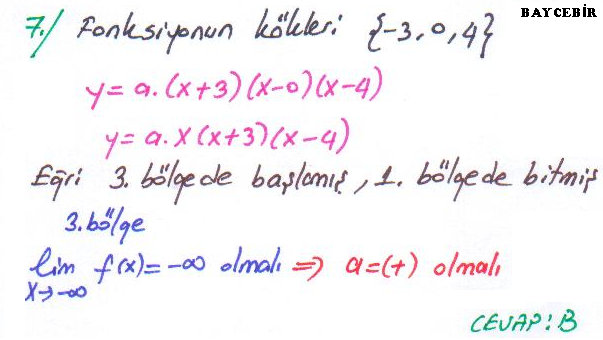 BAYCEBİR
7./ Fonksiyonun kökleri {-3,0,4}
y=a.(x+3)(x-0)(x-4)
y=a.x(x+3)(x-4)
Eğri 3. bölgede başlamış, 1. bölgede bitmiş
3.bölge
lim f(x)=-∞ olmalı ⇒ a=(+) olmalı
x→-∞
CEVAP: B